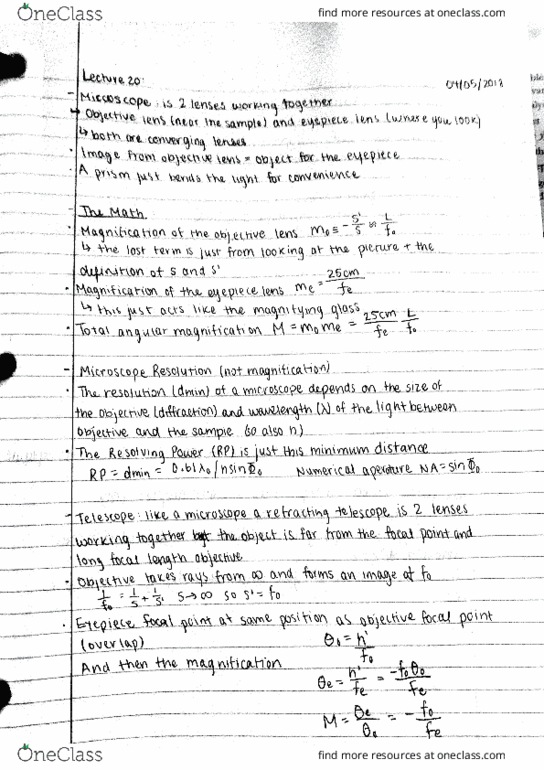 OneClass
find more resources at oneclass.com
Lecture 20:
04/05/2018
- Microscope: is 2 lenses working together
↳ Objective lens (near the sample) and eyepiece lens (where you look)
↳ both are converging lenses
• Image from objective lens = object for the eyepiece
• A prism just bends the light for convenience
- The Math
• Magnification of the objective lens m₀ = -s'/s ≈ L/f₀
↳ the last term is just from looking at the picture + the
definition of s and s'
• Magnification of the eyepiece lens me = 25cm/fe
↳ this just acts like the magnifying glass
• Total angular magnification M = m₀me = 25cm/fe L/f₀
- Microscope Resolution (not magnification)
• The resolution (dmin) of a microscope depends on the size of
the objective (diffraction) and wavelength (λ) of the light between
objective and the sample (so also n)
• The Resolving Power (RP) is just this minimum distance
RP = dmin = 0.61λ₀/nsinΦ₀ Numerical aperture NA = sinΦ₀
- Telescope: like a microscope a refracting telescope is 2 lenses
working together but the object is far from the focal point and
long focal length objective
• Objective takes rays from ∞ and forms an image at f₀
1/f₀ = 1/s + 1/s' s→∞ so s' = f₀
• Eyepiece focal point at same position as objective focal point
(overlap)
θ₀ = h'/f₀
And then the magnification
θe = h'/fe = -f₀θ₀/fe
M = θe/θ₀ = -f₀/fe
OneClass
find more resources at oneclass.com